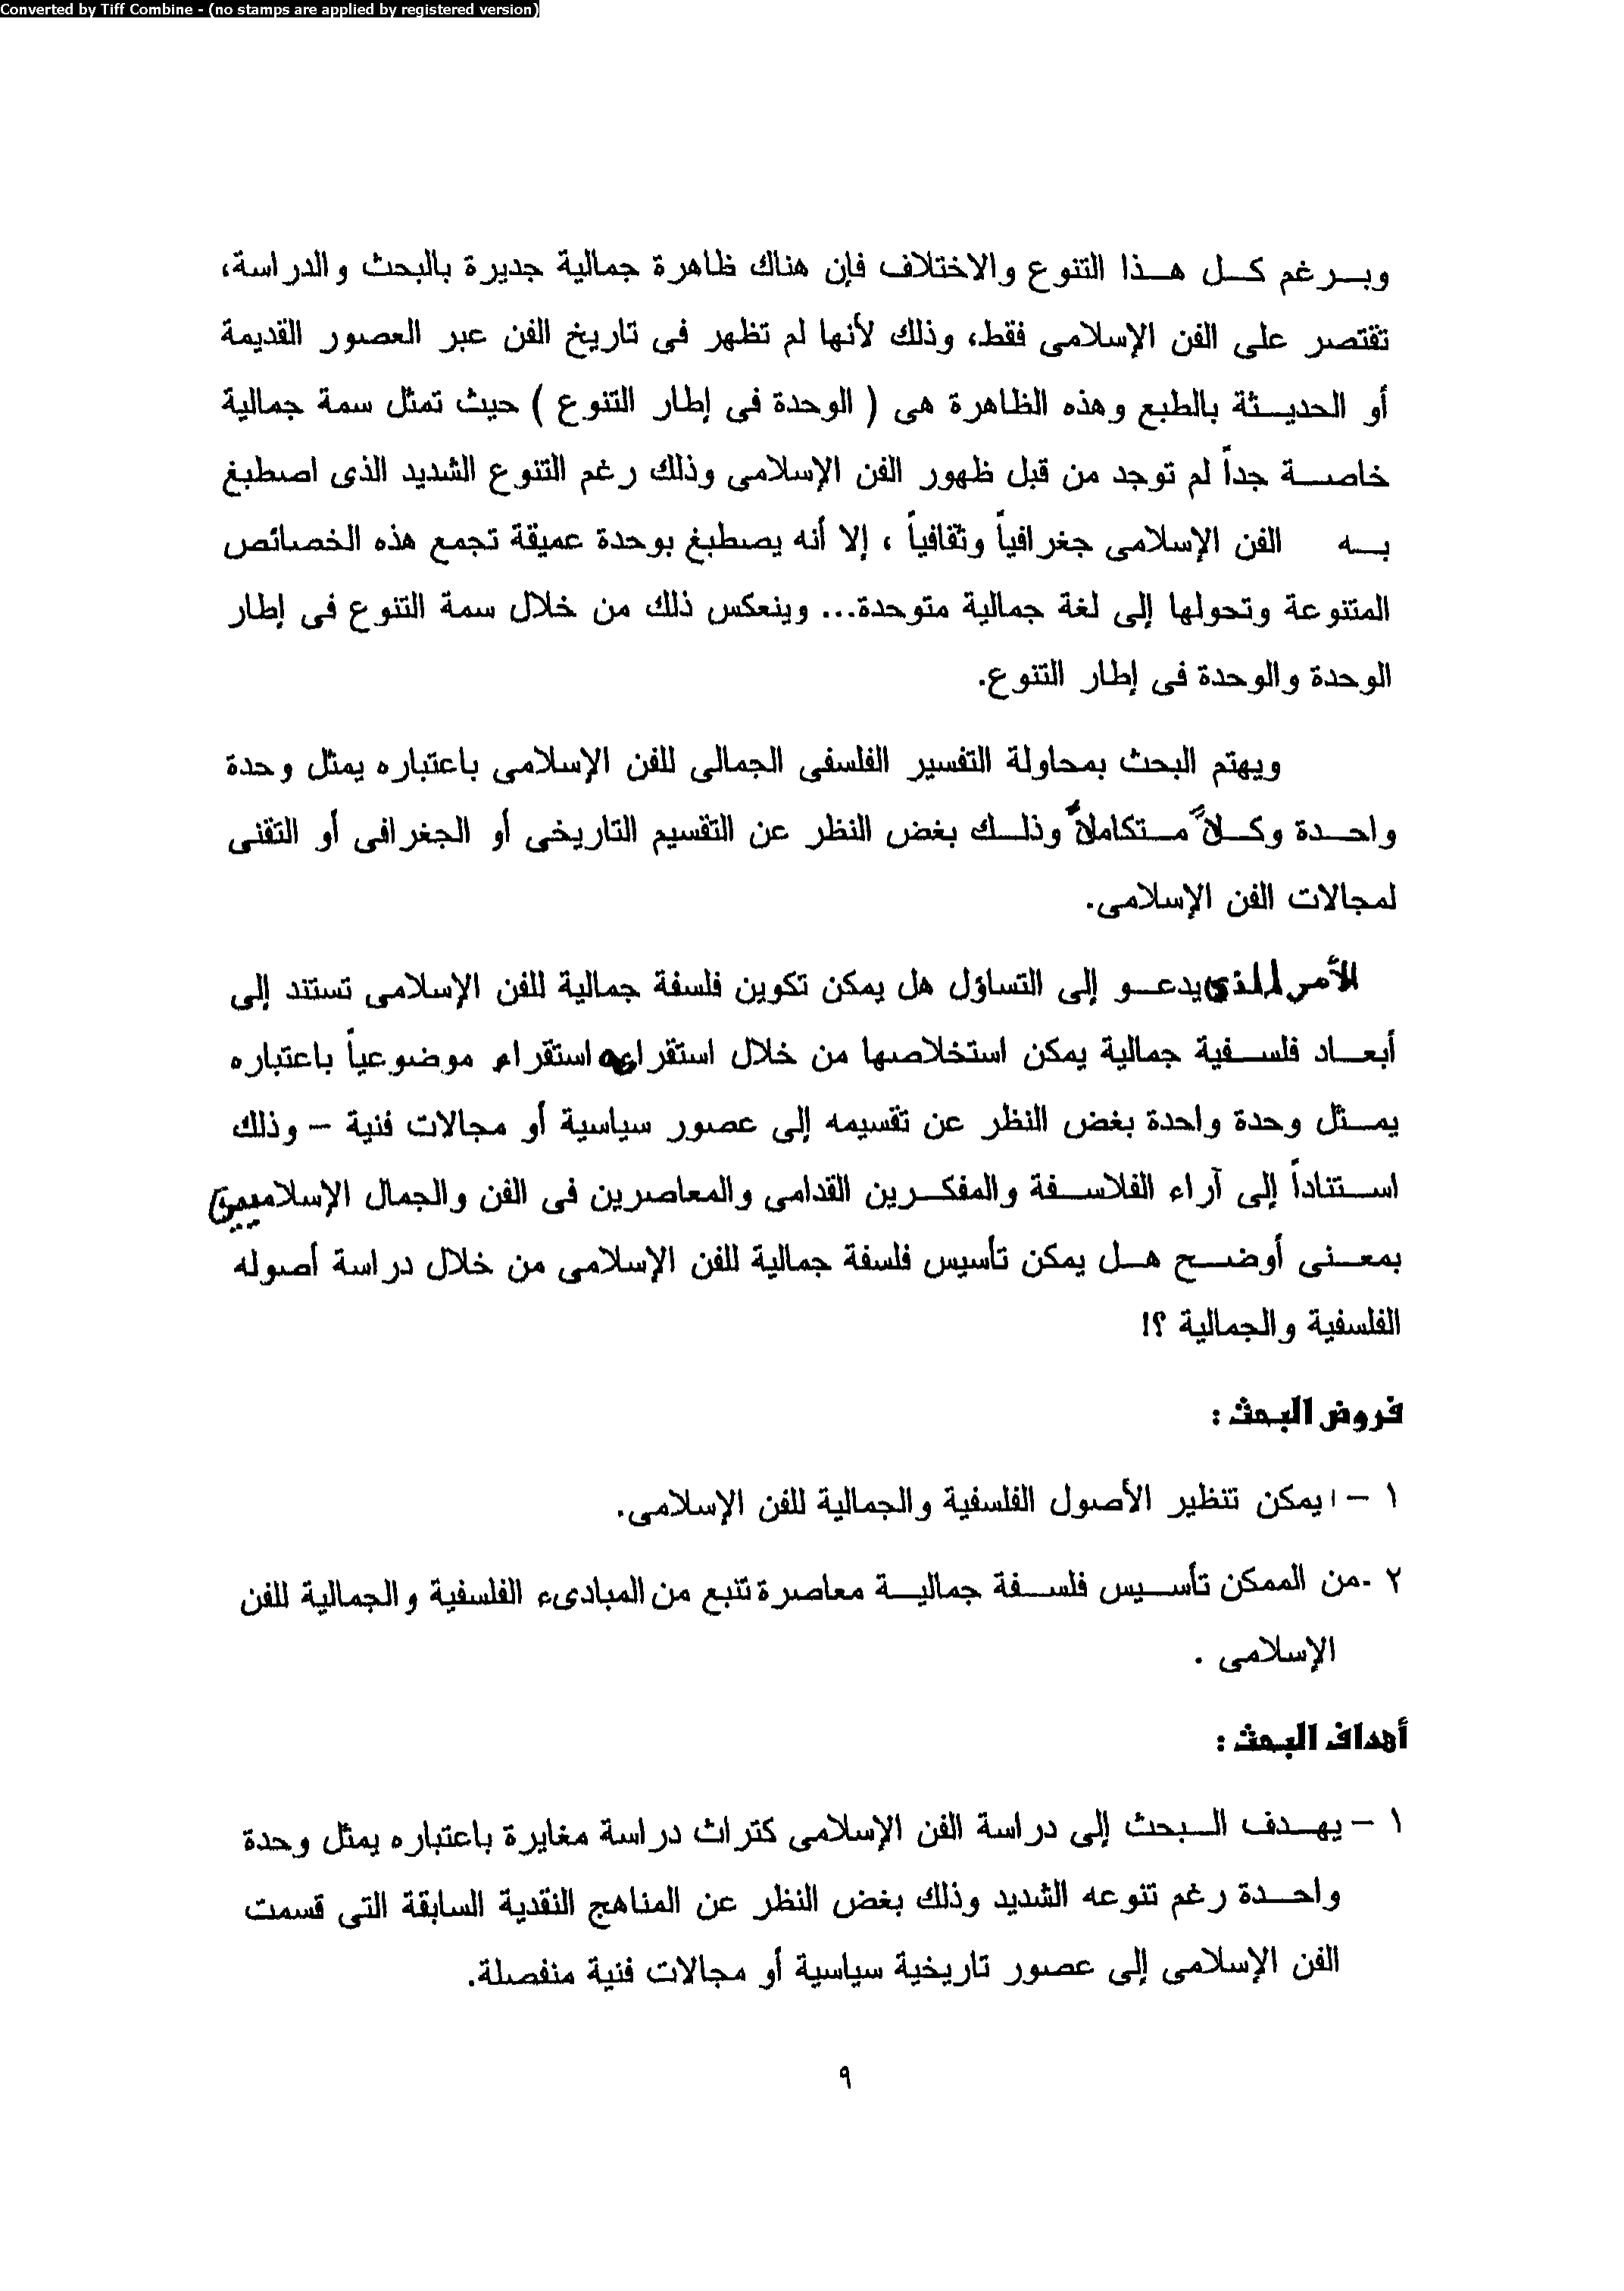 Converted by Tiff Combine - (no stamps are applied by registered version)
وبرغم كل هذا التنوع والاختلاف فإن هناك ظاهرة جمالية جديرة بالبحث والدراسة،
تقتصر على الفن الإسلامى فقط، وذلك لأنها لم تظهر فى تاريخ الفن عبر العصور القديمة
أو الحديثة بالطبع وهذه الظاهرة هى ( الوحدة فى إطار التنوع ) حيث تمثل سمة جمالية
خاصة جداً لم توجد من قبل ظهور الفن الإسلامى وذلك رغم التنوع الشديد الذى اصطبغ
به الفن الإسلامى جغرافياً وثقافياً ، إلا أنه يصطبغ بوحدة عميقة تجمع هذه الخصائص
المتنوعة وتحولها إلى لغة جمالية متوحدة... وينعكس ذلك من خلال سمة التنوع فى إطار
الوحدة والوحدة فى إطار التنوع.
ويهتم البحث بمحاولة التفسير الفلسفى الجمالى للفن الإسلامى باعتباره يمثل وحدة
واحدة وكلاً متكاملاً وذلك بغض النظر عن التقسيم التاريخى أو الجغرافى أو التقنى
لمجالات الفن الإسلامى.
الأمر الذى يدعو إلى التساؤل هل يمكن تكوين فلسفة جمالية للفن الإسلامى تستند إلى
أبعاد فلسفية جمالية يمكن استخلاصها من خلال استقراءه استقراء موضوعياً باعتباره
يمثل وحدة واحدة بغض النظر عن تقسيمه إلى عصور سياسية أو مجالات فنية – وذلك
استناداً إلى آراء الفلاسفة والمفكرين القدامى والمعاصرين فى الفن والجمال الإسلاميين
بمعنى أوضح هل يمكن تأسيس فلسفة جمالية للفن الإسلامى من خلال دراسة أصوله
الفلسفية والجمالية ؟!
فروض البحث :
١ – يمكن تنظير الأصول الفلسفية والجمالية للفن الإسلامى.
٢ -من الممكن تأسيس فلسفة جمالية معاصرة تنبع من المبادىء الفلسفية والجمالية للفن
الإسلامى .
أهداف البحث :
١ – يهدف البحث إلى دراسة الفن الإسلامى كتراث دراسة مغايرة باعتباره يمثل وحدة
واحدة رغم تنوعه الشديد وذلك بغض النظر عن المناهج النقدية السابقة التى قسمت
الفن الإسلامى إلى عصور تاريخية سياسية أو مجالات فنية منفصلة.
٩